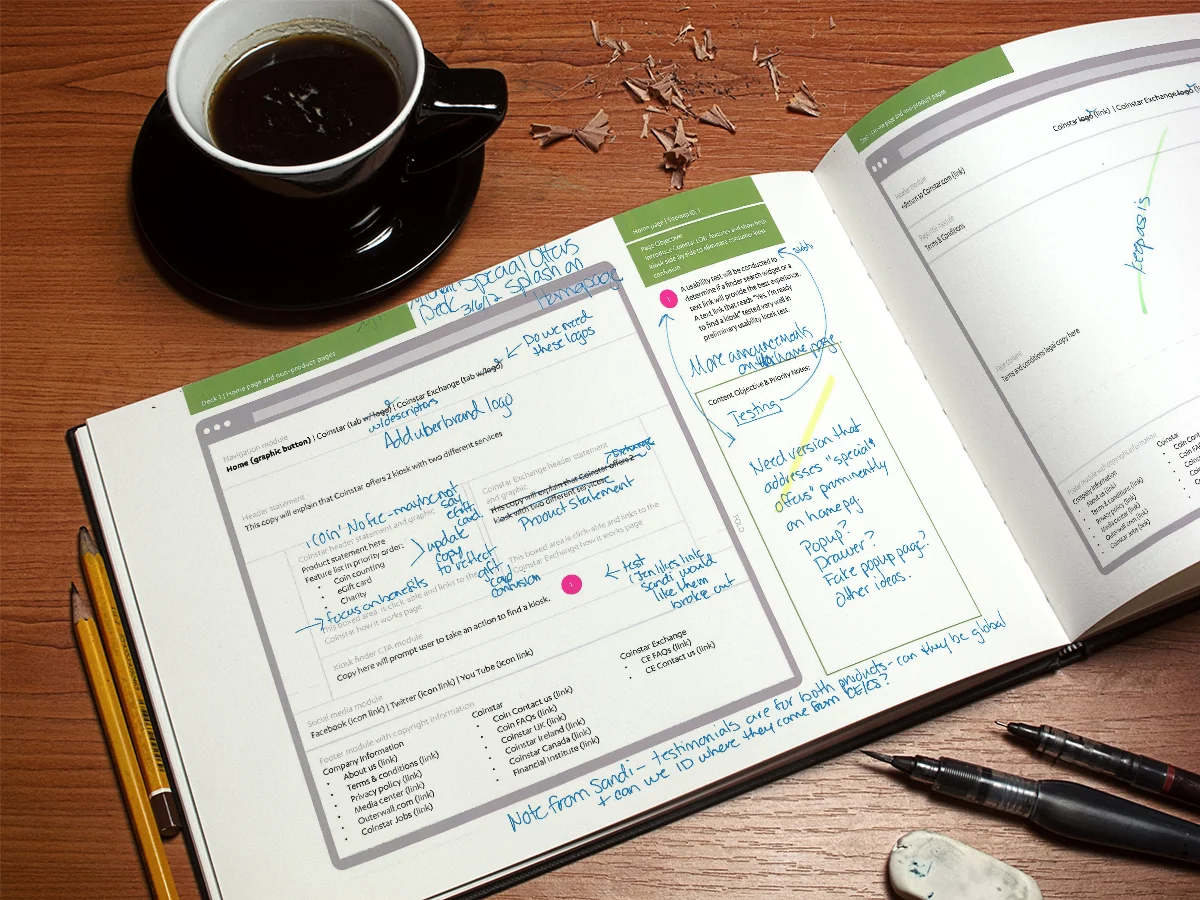 Special Offers
Deck 3/6/12 Splash on
Homepage
Deck 1 | Home page and non-product pages
Do we need
these logos
Navigation module
Home (graphic button) | Coinstar (tab w/logo) | Coinstar Exchange (tab w/logo)
w/descriptors
Add uberbrand logo
Header statement
This copy will explain that Coinstar offers 2 kiosk with two different services
Coin! Notice - maybe not
say
eGift
card
Coinstar header statement and graphic
Product statement here
Feature list in priority order:
Coin counting
eGift card
Charity
update
copy
to reflect
gift
card
confusion
focus on benefits
This boxed area is click-able and links to the
Coinstar how it works page
Coinstar Exchange header statement
and graphic
Exchange
This copy will explain that Coinstar offers 2
kiosk with two different services
Product Statement
This boxed area is click-able and links to the
Coinstar Exchange how it works page
1
test
(Jen likes link
Sandi would
like them
broke out
Kiosk finder CTA module
Copy here will prompt user to take an action to find a kiosk.
Social media module
Facebook (icon link) | Twitter (icon link) | You Tube (icon link)
Footer module with copyright information
Company Information
• About us (link)
• Terms & conditions (link)
• Privacy policy (link)
• Media center (link)
• Outerwall.com (link)
• Coinstar Jobs (link)
Coinstar
• Coin Contact us (link)
• Coin FAQs (link)
• Coinstar UK (link)
• Coinstar Ireland (link)
• Coinstar Canada (link)
• Financial Institute (link)
Coinstar Exchange
• CE FAQs (link)
• CE Contact us (link)
Note from Sandi - testimonials are for both products - can they be global
+ can we ID where they come from CE/CS?
Home page | Sitemap ID: 1
Page Objective:
Introduce Coinstar LOB, features and show both
kiosk side by side to eliminate consumer kiosk
confusion.
1
A usability test will be conducted to
determine if a finder search widget or a
text link will provide the best experience.
A text link that reads "Yes, I'm ready
to find a kiosk" tested very well in
preliminary usability kiosk test.
with
More announcements
on home page
Content Objective & Priority Notes:
Testing
Need version that
addresses "special
offers" prominently
on homepg
Popup?
Drawer?
Fake popup page?
Other ideas.
FOLD
Deck 1 | Home page and non-product pages
Coinstar logo (link) | Coinstar Exchange logo
Header module
Return to Coinstar.com (link)
Page title module
Terms & Conditions
keep as is
Page content
Terms and conditions legal copy here
Footer module with copyright information
Company Information
• About us (link)
• Terms & conditions (link)
• Privacy policy (link)
• Media center (link)
• Outerwall.com (link)
• Coinstar Jobs (link)
Coinstar